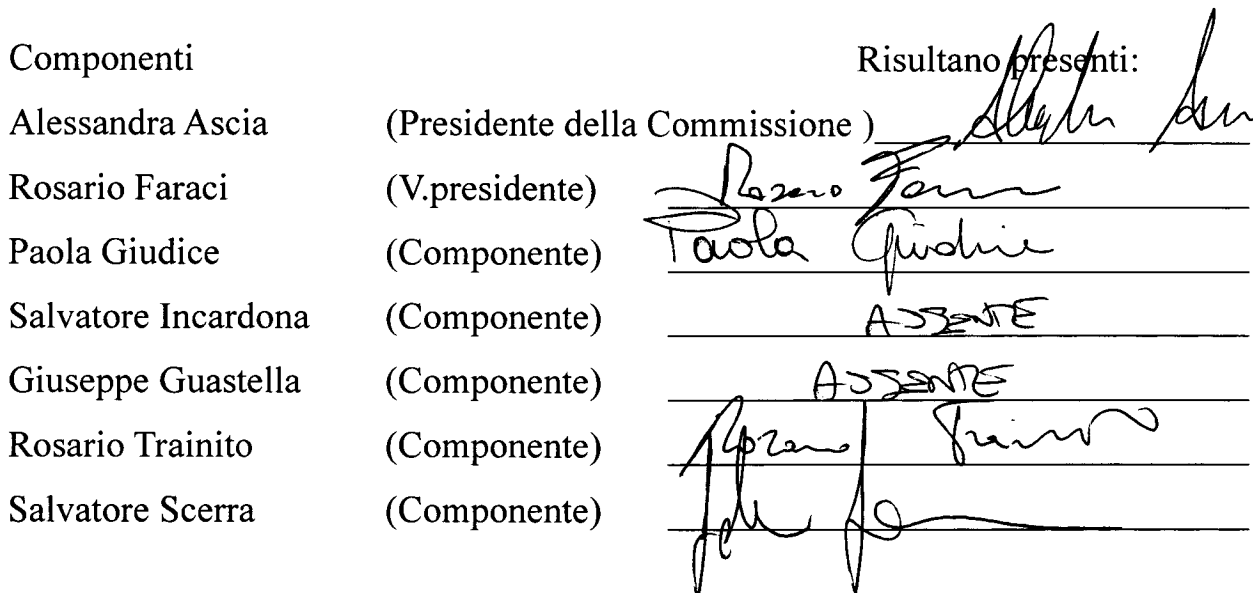 Componenti Risultano presenti:
Alessandra Ascia (Presidente della Commissione )
Rosario Faraci (V.presidente) Rosario
Paola Giudice (Componente) Paola Giudice
Salvatore Incardona (Componente) ASSENTE
Giuseppe Guastella (Componente) ASSENTE
Rosario Trainito (Componente) Rosario Trainito
Salvatore Scerra (Componente)